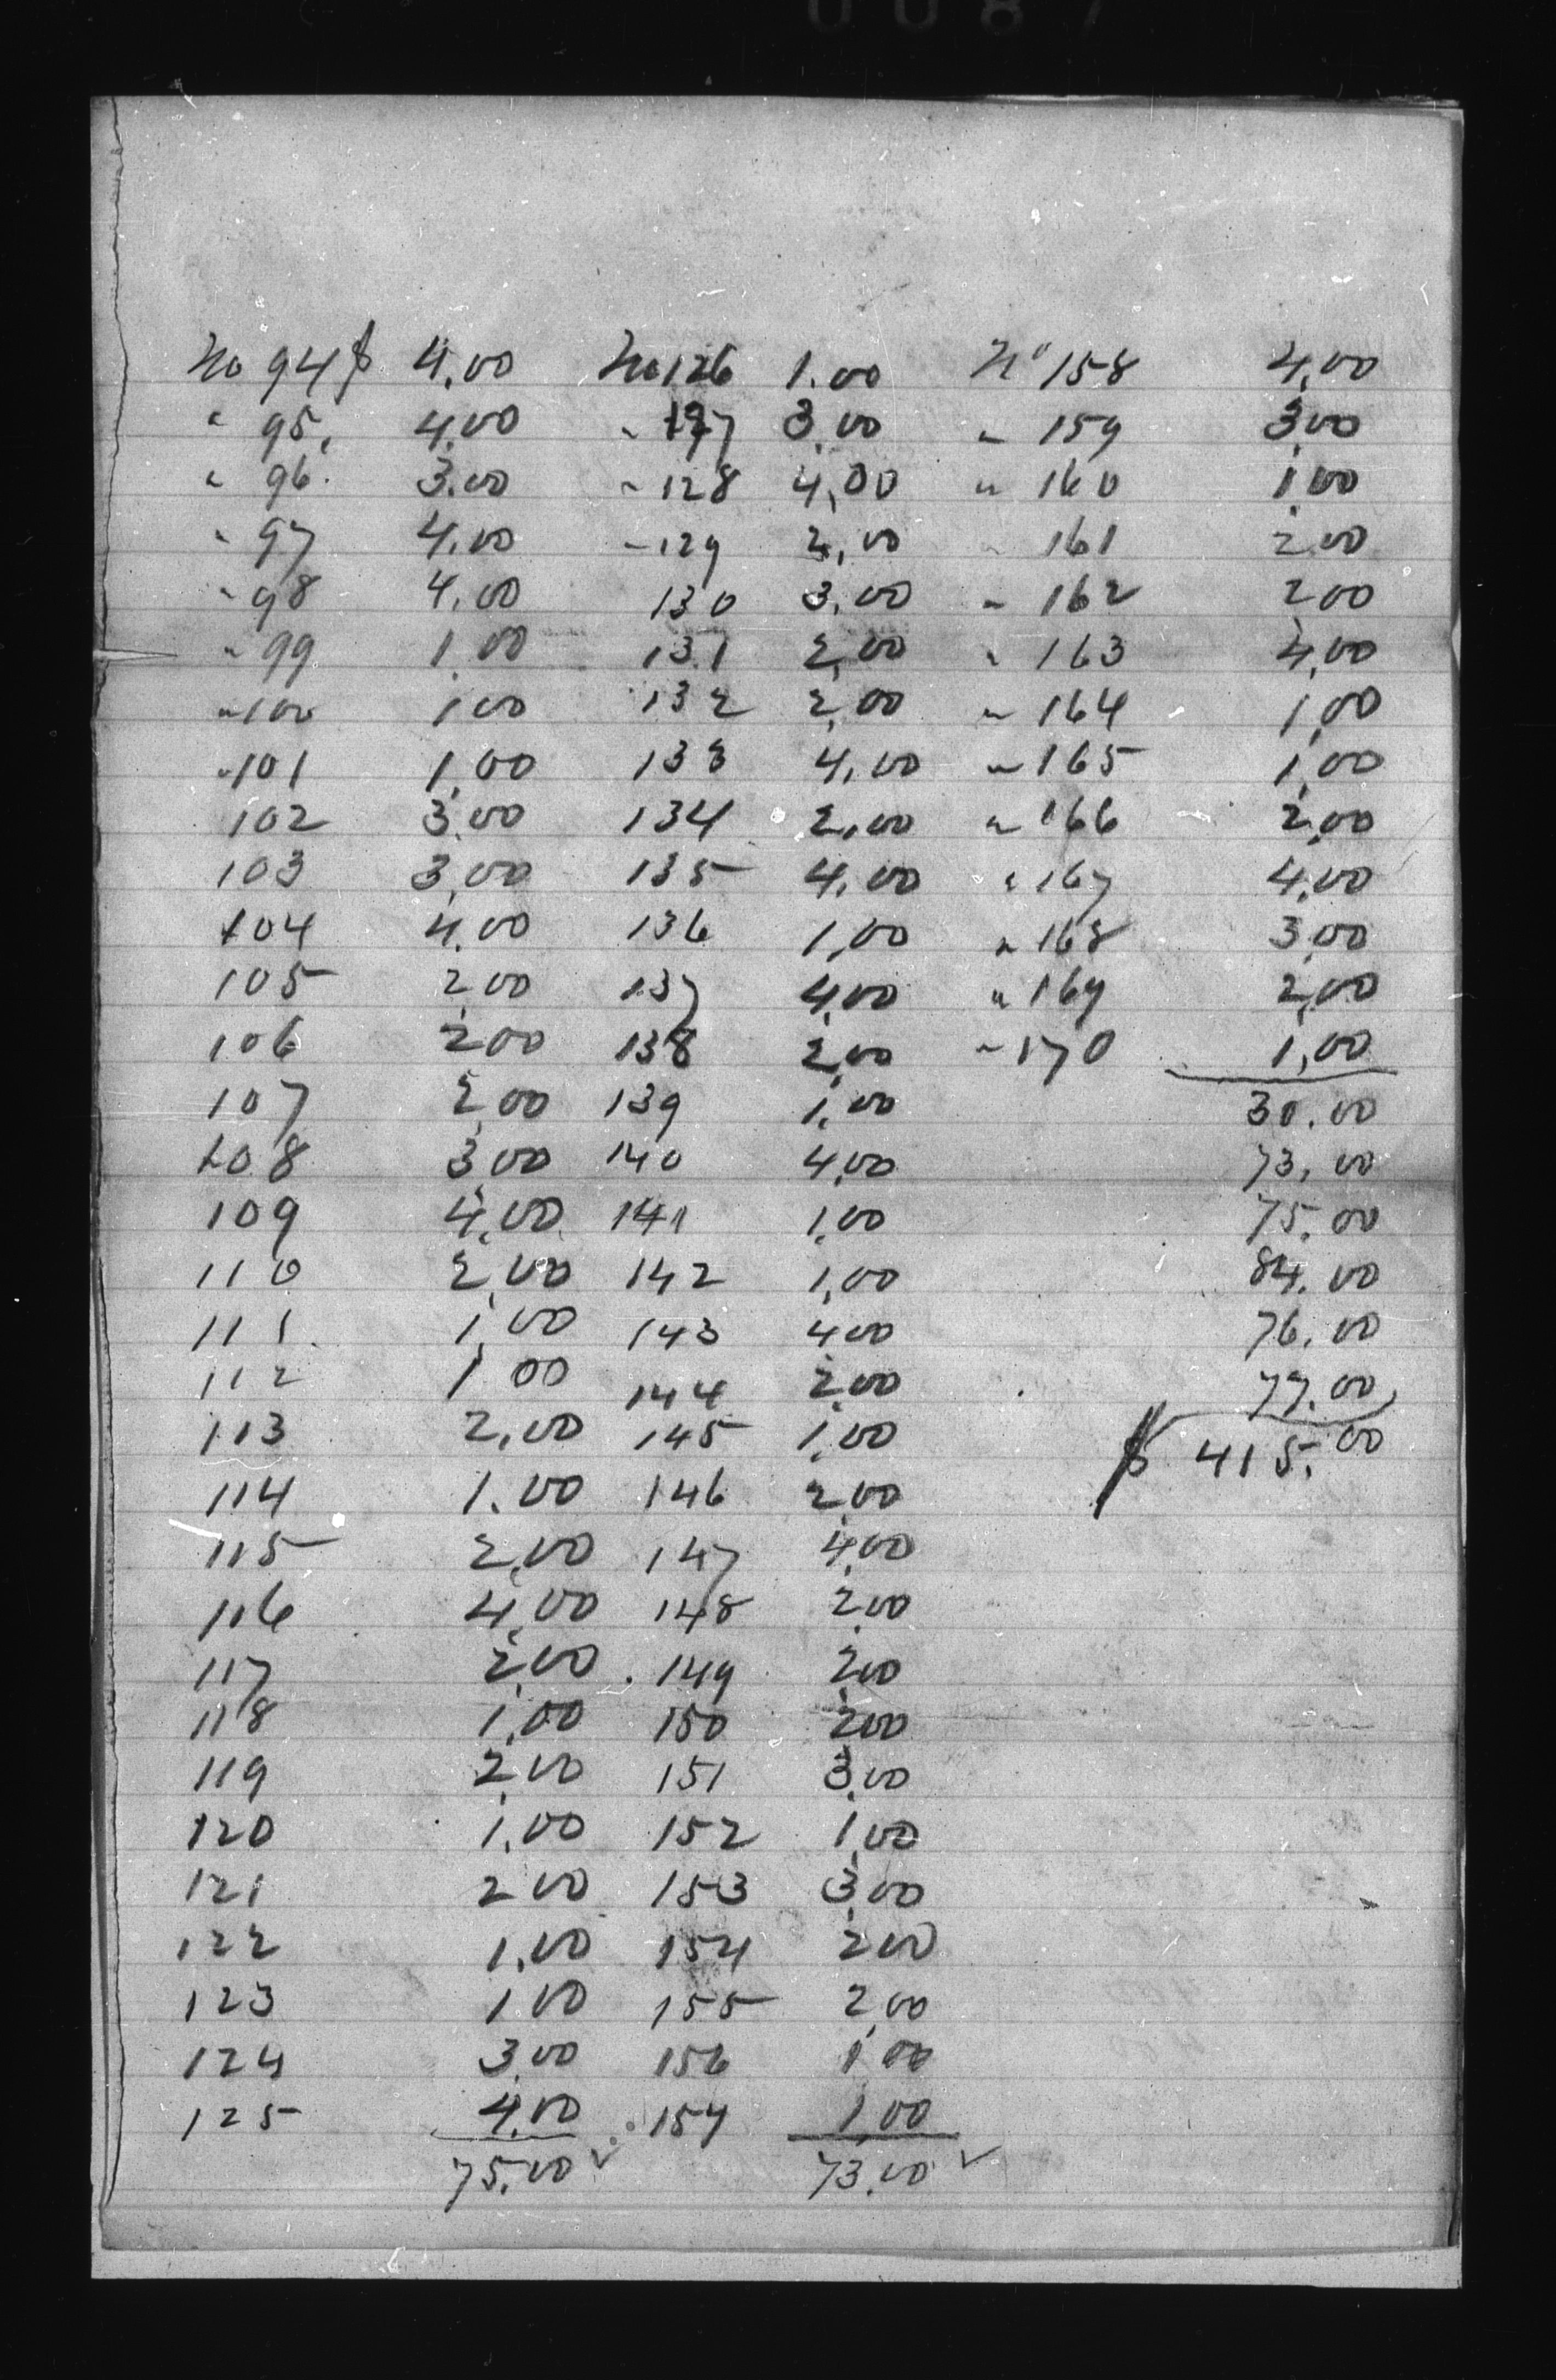 0087
No 94 $ 4.00 No 126 1.00 No 158 4,00
" 95, 4.00 " 127 3,00 " 159 3,00
" 96. 3.00 " 128 4,00 " 160 1,00
" 97 4.00 " 129 2,00 " 161 2.00
" 98 4.00 130 3,00 " 162 200
" 99 1.00 131 2,00 " 163 4,00
" 100 100 132 2,00 " 164 1,00
" 101 1,00 133 4,00 " 165 1,00
102 3.00 134 2,00 " 166 2,00
103 3,00 135 4,00 " 167 4,00
104 4,00 136 1,00 " 168 3,00
105 2,00 137 4,00 " 169 2,00
106 200 138 2,00 " 170 1,00
107 2,00 139 1,00 30.00
108 3,00 140 4,00 73,00
109 4,00 141 1,00 75.00
110 2,00 142 1,00 84.00
111. 1,00 143 400 76.00
112 1 00 144 2,00 77.00
113 2,00 145 1,00 $ 415.00
114 1.00 146 2,00
115 2,00 147 4,00
116 4,00 148 2,00
117 2,00 149 2,00
118 1,00 150 200
119 2,00 151 3,00
120 1,00 152 1,00
121 200 153 3,00
122 1,00 154 200
123 100 155 2,00
124 3,00 156 1 00
125 4,00 157 1,00
75.00 ✓ 73.00 ✓